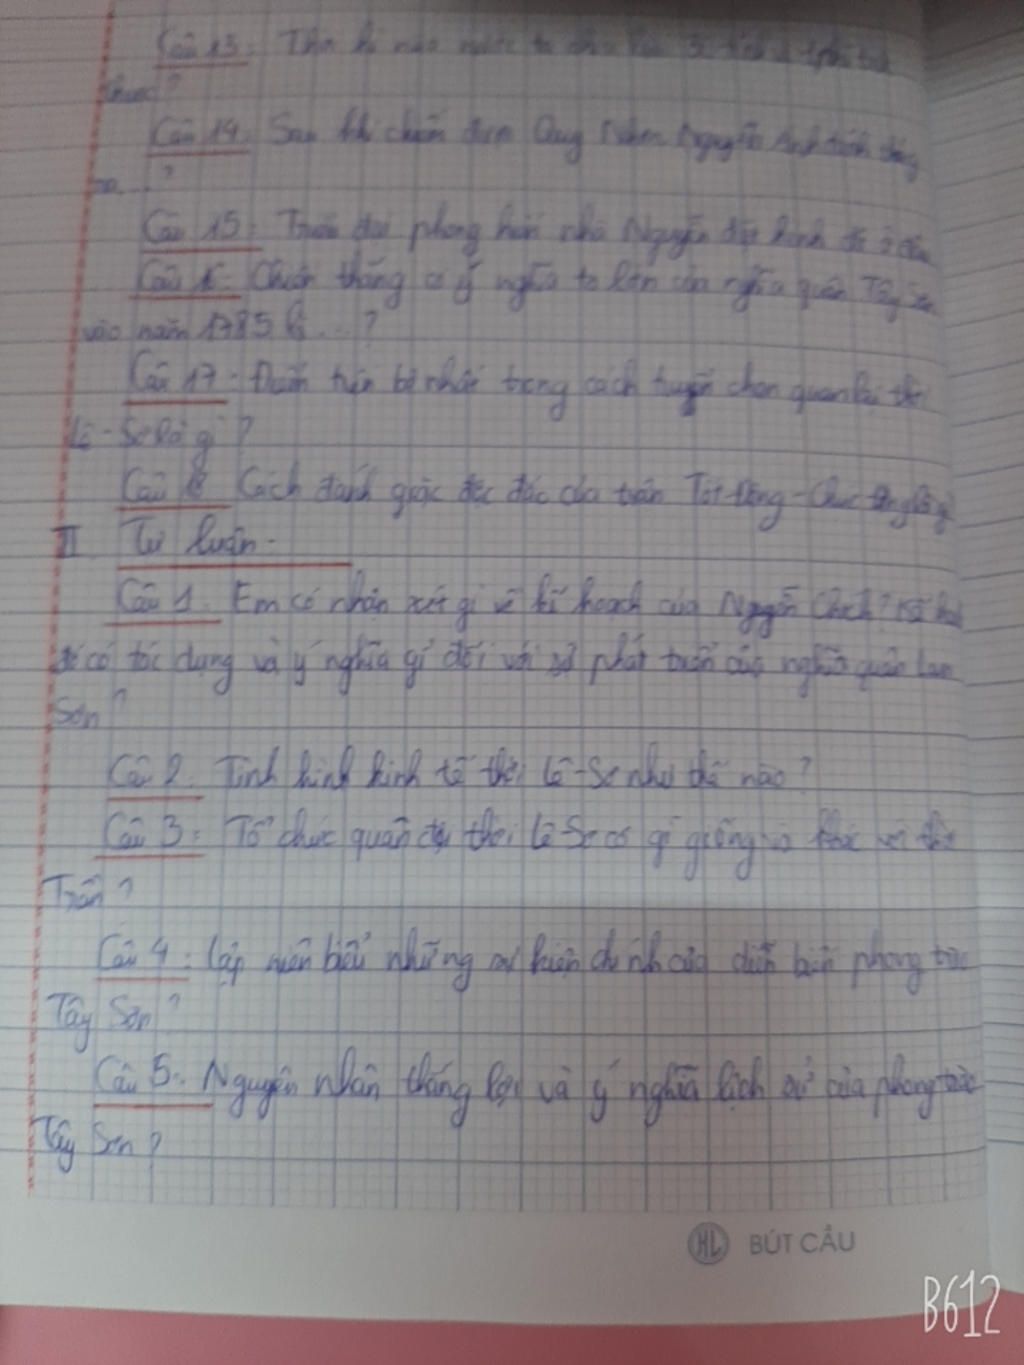 Câu 13:
Câu 14: Sau khi chiếm được Quy Nhơn Nguyễn Ánh
?
Câu 15: Triều đại phong kiến nhà Nguyễn đặt kinh đô ở đâu
Câu 16: Chiến thắng có ý nghĩa to lớn của nghĩa quân Tây Sơn
vào năm 1785 là ...?
Câu 17: Điểm tiến bộ nhất trong cách tuyển chọn quan lại thời
Lê-Sơ là gì?
Câu 18 Cách đánh giặc độc đáo của trận Tốt Động - Chúc Động là gì
II Tự luận.
Câu 1. Em có nhận xét gì về kế hoạch của Nguyễn Chích? Kế hoạch
đó có tác dụng và ý nghĩa gì đối với sự phát triển của nghĩa quân Lam
Sơn?
Câu 2. Tình hình kinh tế thời Lê-Sơ như thế nào?
Câu 3: Tổ chức quân đội thời Lê Sơ có gì giống và khác với thời
Trần?
Câu 4: Lập niên biểu những sự kiện chính của diễn biến phong trào
Tây Sơn?
Câu 5: Nguyên nhân thắng lợi và ý nghĩa lịch sử của phong trào
Tây Sơn?
HL BÚT CẦU
B612